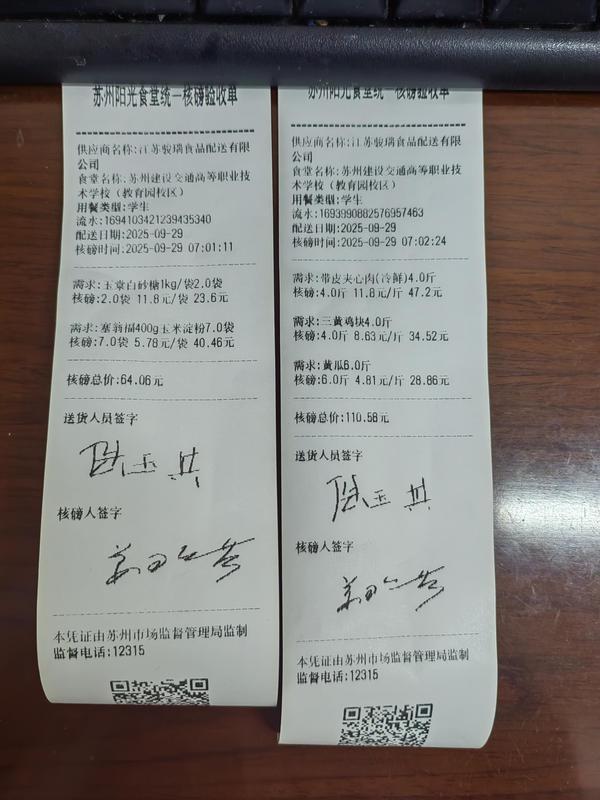 苏州阳光食堂统一核磅验收单
供应商名称:江苏骏瑞食品配送有限
公司
食堂名称:苏州建设交通高等职业技
术学校（教育园校区）
用餐类型:学生
流水:1694103421239435340
配送日期:2025-09-29
核磅时间:2025-09-29 07:01:11
需求:玉棠白砂糖1kg/袋2.0袋
核磅:2.0袋 11.8元/袋 23.6元
需求:塞翁福400g玉米淀粉7.0袋
核磅:7.0袋 5.78元/袋 40.46元
核磅总价:64.06元
送货人员签字
核磅人签字
本凭证由苏州市场监督管理局监制
监督电话:12315
苏州阳光食堂统一核磅验收单
供应商名称:江苏骏瑞食品配送有限
公司
食堂名称:苏州建设交通高等职业技
术学校（教育园校区）
用餐类型:学生
流水:1693990882576957463
配送日期:2025-09-29
核磅时间:2025-09-29 07:02:24
需求:带皮夹心肉(冷鲜)4.0斤
核磅:4.0斤 11.8元/斤 47.2元
需求:三黄鸡块4.0斤
核磅:4.0斤 8.63元/斤 34.52元
需求:黄瓜6.0斤
核磅:6.0斤 4.81元/斤 28.86元
核磅总价:110.58元
送货人员签字
核磅人签字
本凭证由苏州市场监督管理局监制
监督电话:12315